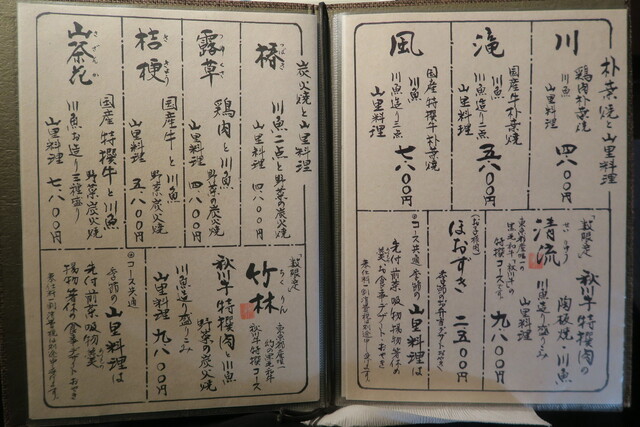 朴葉焼と山里料理
川
鶏肉朴葉焼
川魚
山里料理
四、八〇〇円
滝
国産牛朴葉焼
川魚
川魚造り二点
山里料理
五、八〇〇円
風
国産特撰牛朴葉焼
川魚
川魚造り三点
山里料理
七、八〇〇円
数限定
秋川牛特撰肉の
陶板焼と川魚
清流
せいりゅう
川魚造り盛りこみ
山里料理
九、八〇〇円
(お子様用)
ほおずき
二、五〇〇円
コース共通
季節の山里料理は
先付 前菜 吸物 揚物 等休の
炭火焼と山里料理
椿
つばき
川魚二点と野菜の炭火焼
山里料理
四、八〇〇円
露草
つゆくさ
鶏肉と川魚
野菜の炭火焼
山里料理
四、八〇〇円
桔梗
ききょう
国産牛と川魚
野菜炭火焼
山里料理
五、八〇〇円
山茶花
さざんか
国産特撰牛と川魚
野菜炭火焼
川魚お造り三種盛り
山里料理
七、八〇〇円
数限定
竹林
ちくりん
秋川牛特撰コース
秋川牛特撰肉と川魚
野菜の炭火焼
川魚造り盛りこみ
山里料理
九、八〇〇円
コース共通
季節の山里料理は
先付 前菜 吸物